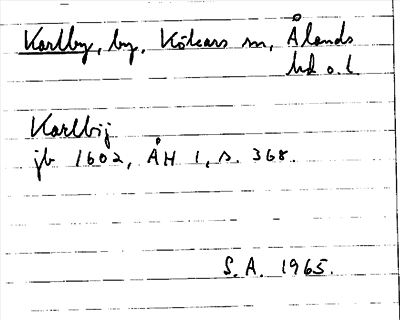 Karlby, by, Kökars sn, Ålands
hd o. l
Karlbij
jb 1602, ÅH 1, s. 368.
S. A. 1965.